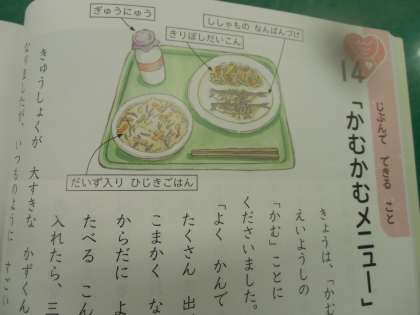 じぶんで できる こと
14
「かむかむメニュー」
ぎゅうにゅう
ししゃもの なんばんづけ
きりぼしだいこん
だいず入り ひじきごはん
きょうは、「かむ
えいようしの
「かむ」ことに
くださいました。
「よく かんで
たくさん 出
こまかく な
からだに よ
たべる こん
入れたら、三
きゅうしょくが 大すきな かずくん
なりましたが、いつものように すごい